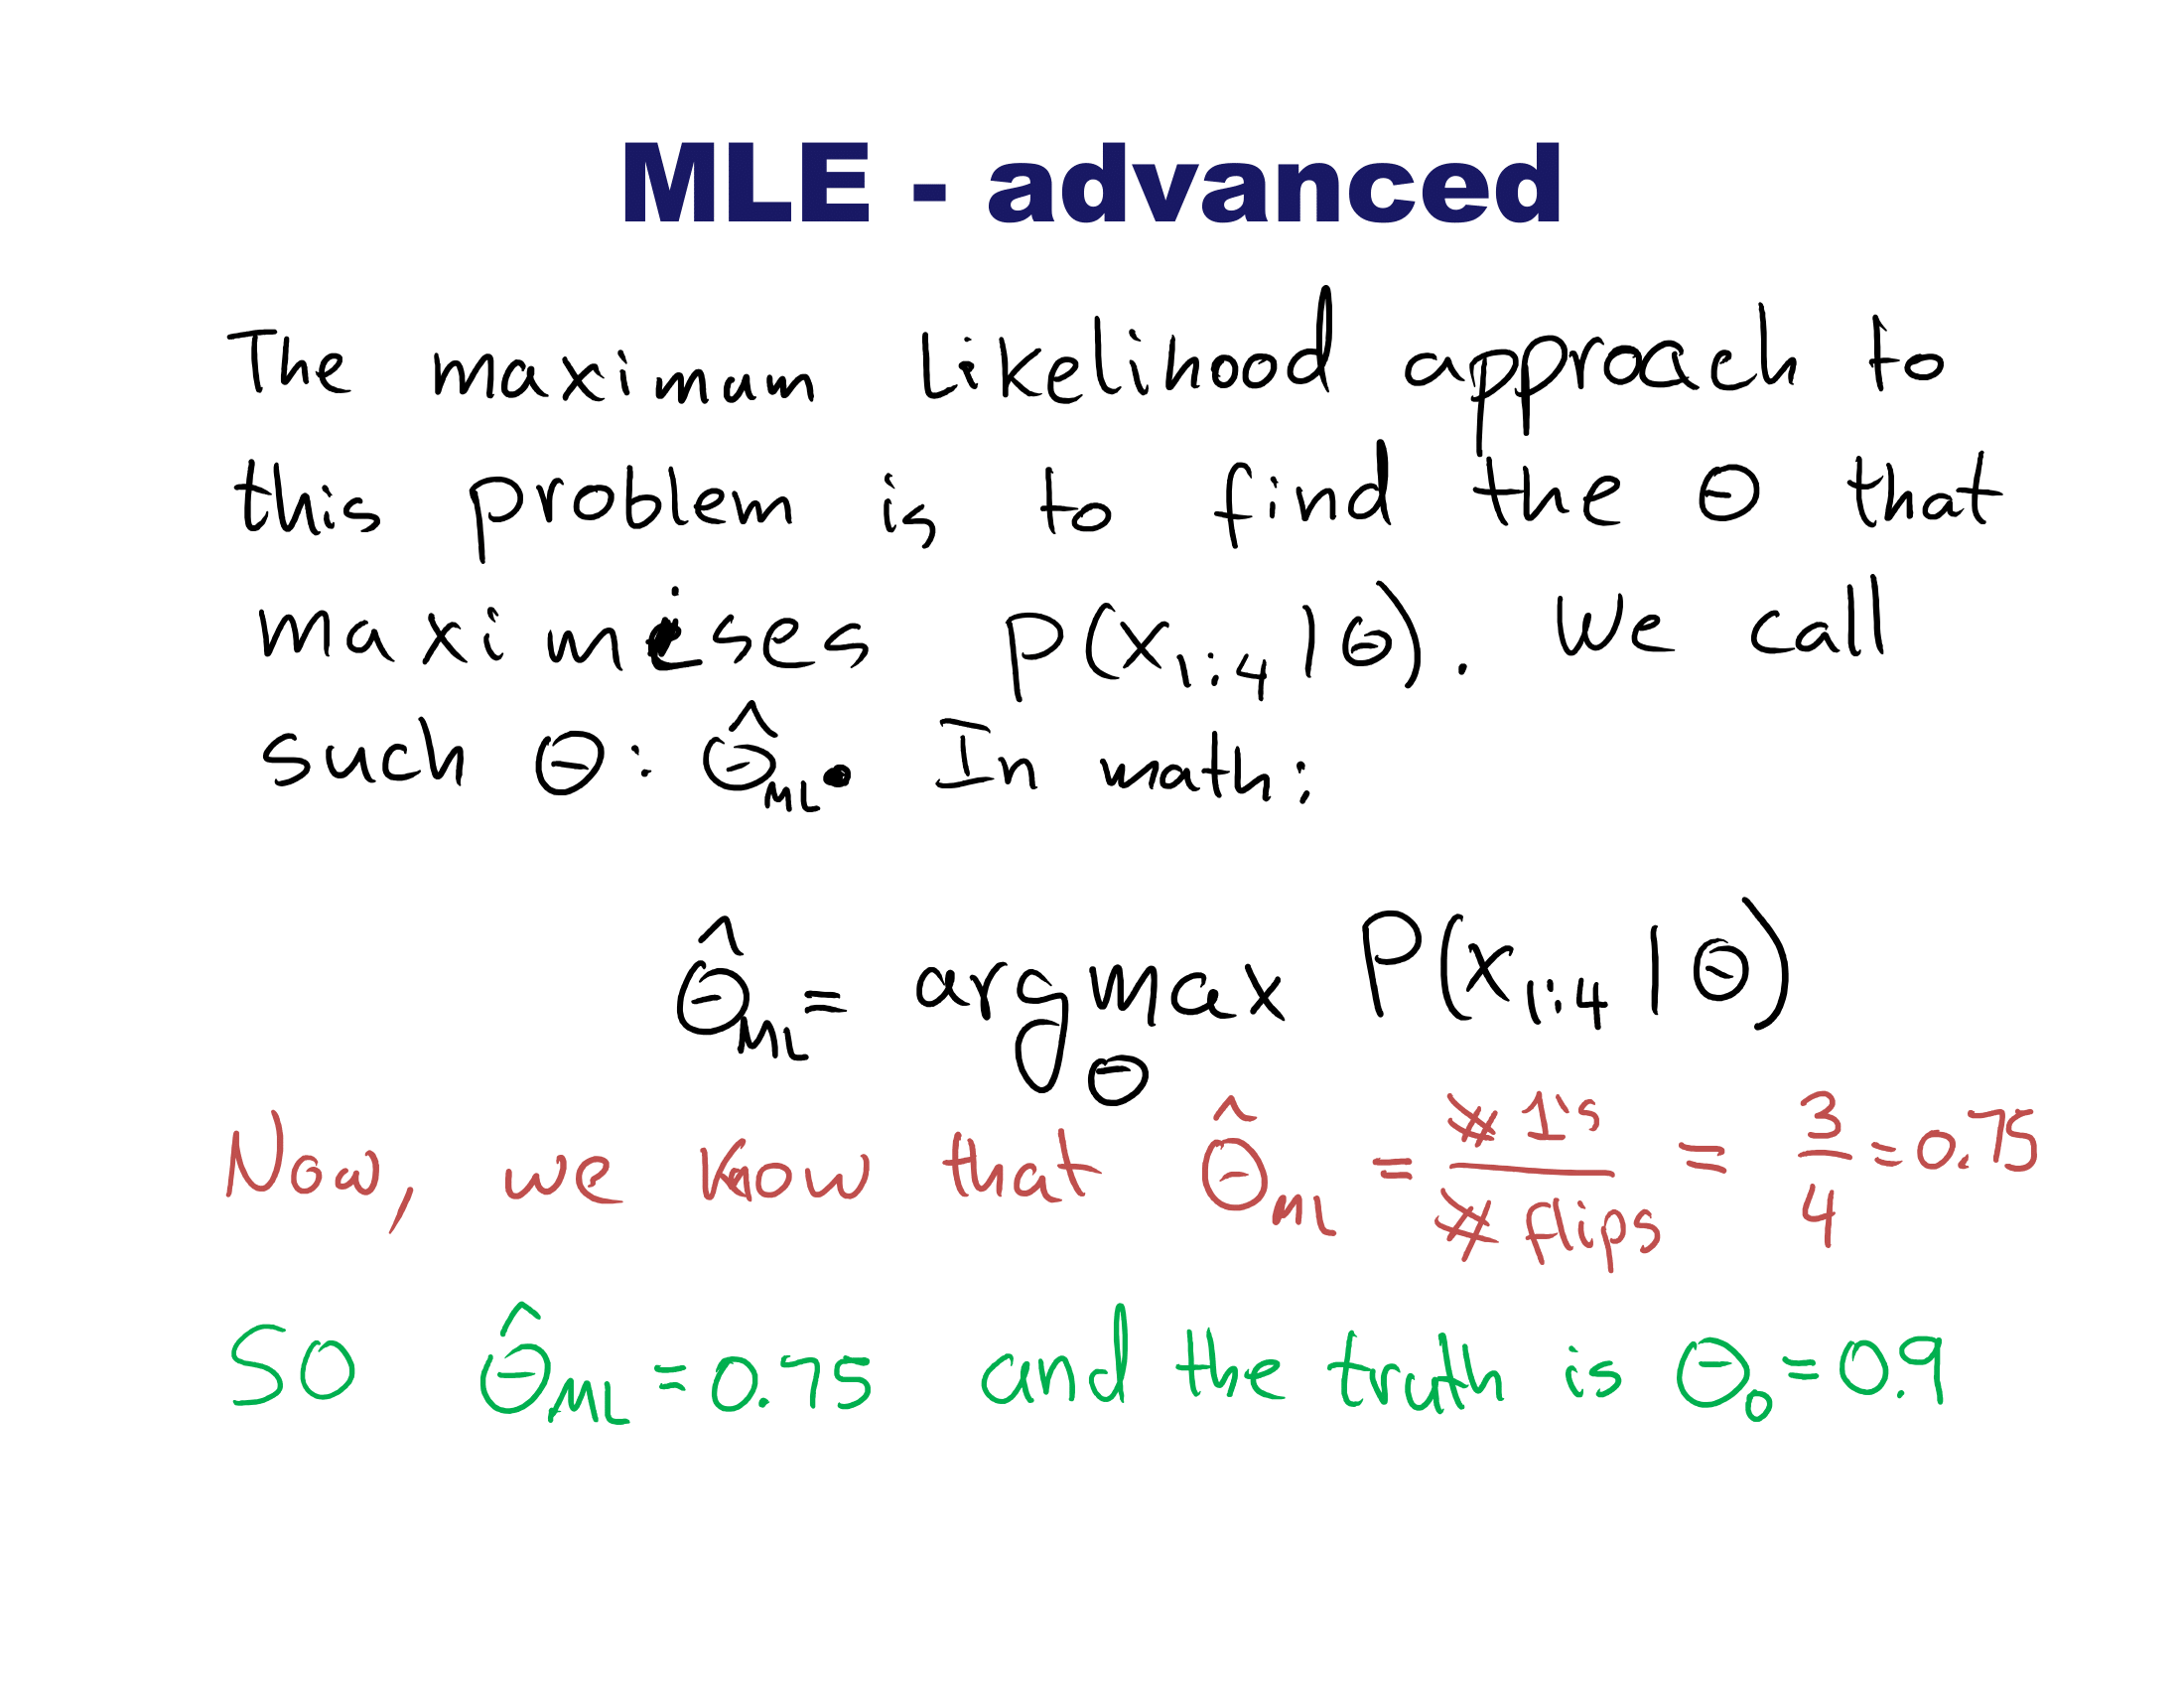 MLE - advanced
The maximum likelihood approach to
this problem is, to find the θ that
maximises P(x₁:₄|θ). We call
such θ: θ̂_ML. In math:
θ̂_ML = arg max_θ P(x₁:₄|θ)
Now, we know that θ̂_ML = # 1's / # flips = 3/4 = 0.75
So θ̂_ML = 0.75 and the truth is θ₀ = 0.9